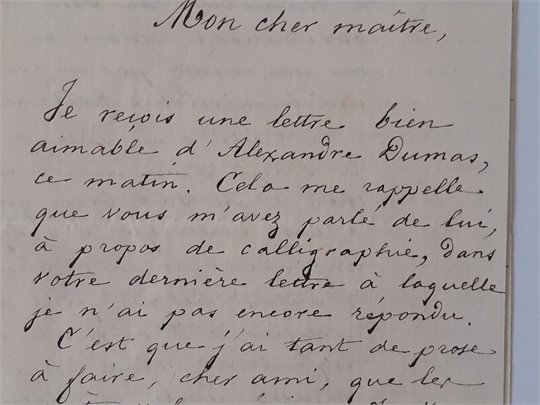 Mon cher maître,
Je reçois une lettre bien
aimable d'Alexandre Dumas,
ce matin. Cela me rappelle
que vous m'avez parlé de lui,
à propos de calligraphie, dans
votre dernière lettre à laquelle
je n'ai pas encore répondu.
C'est que j'ai tant de prose
à faire, cher ami, que les